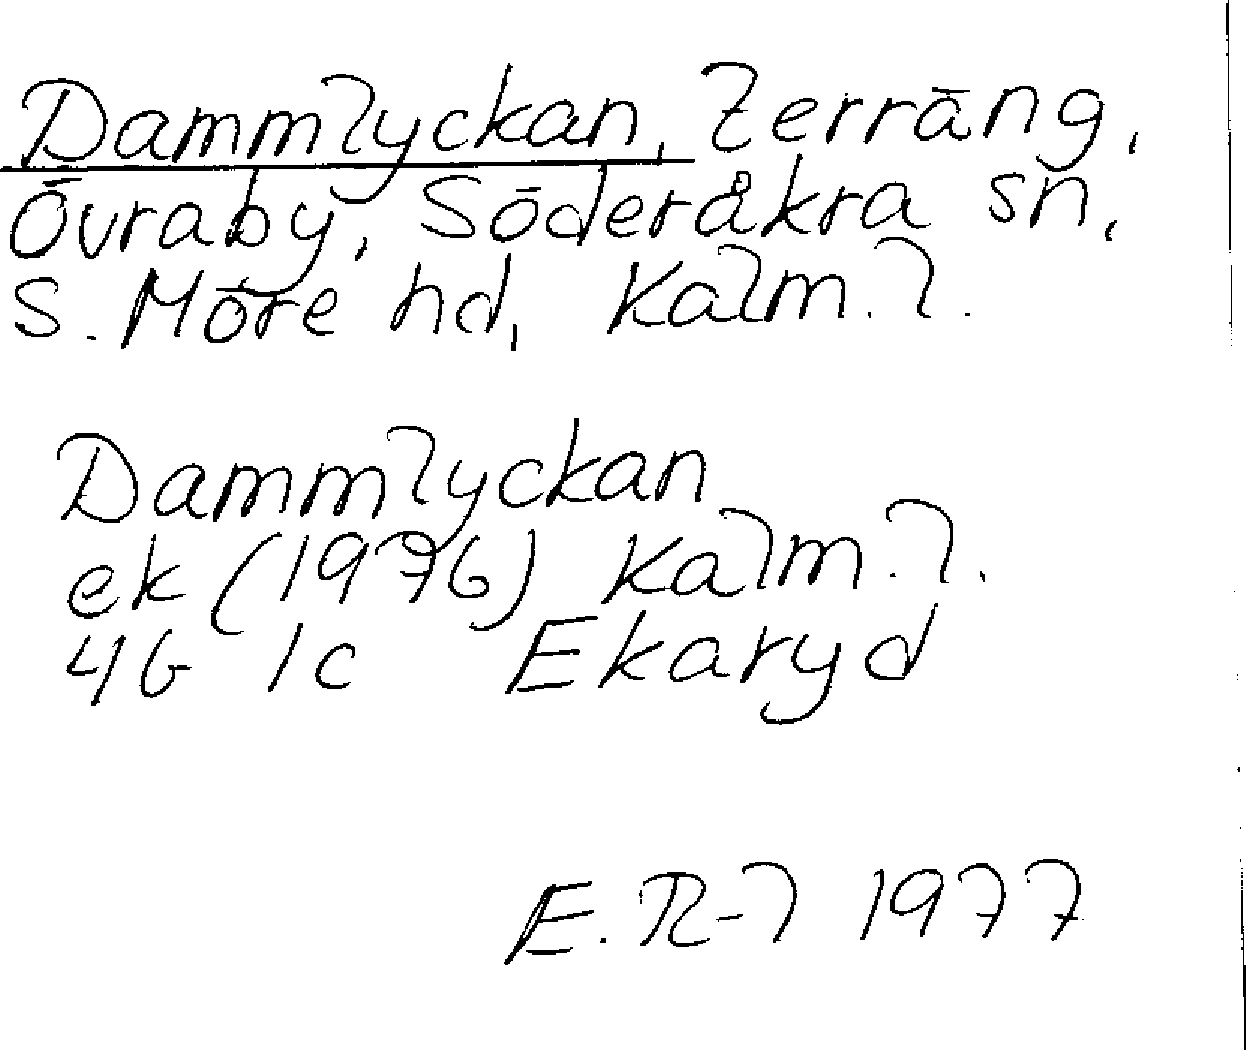 Dammlyckan, terräng,
Övraby, Söderåkra sn,
S. Möre hd, Kalm. l.
Dammlyckan
ek (1976) Kalm. l.
4G 1c Ekaryd
E. R-l 1977